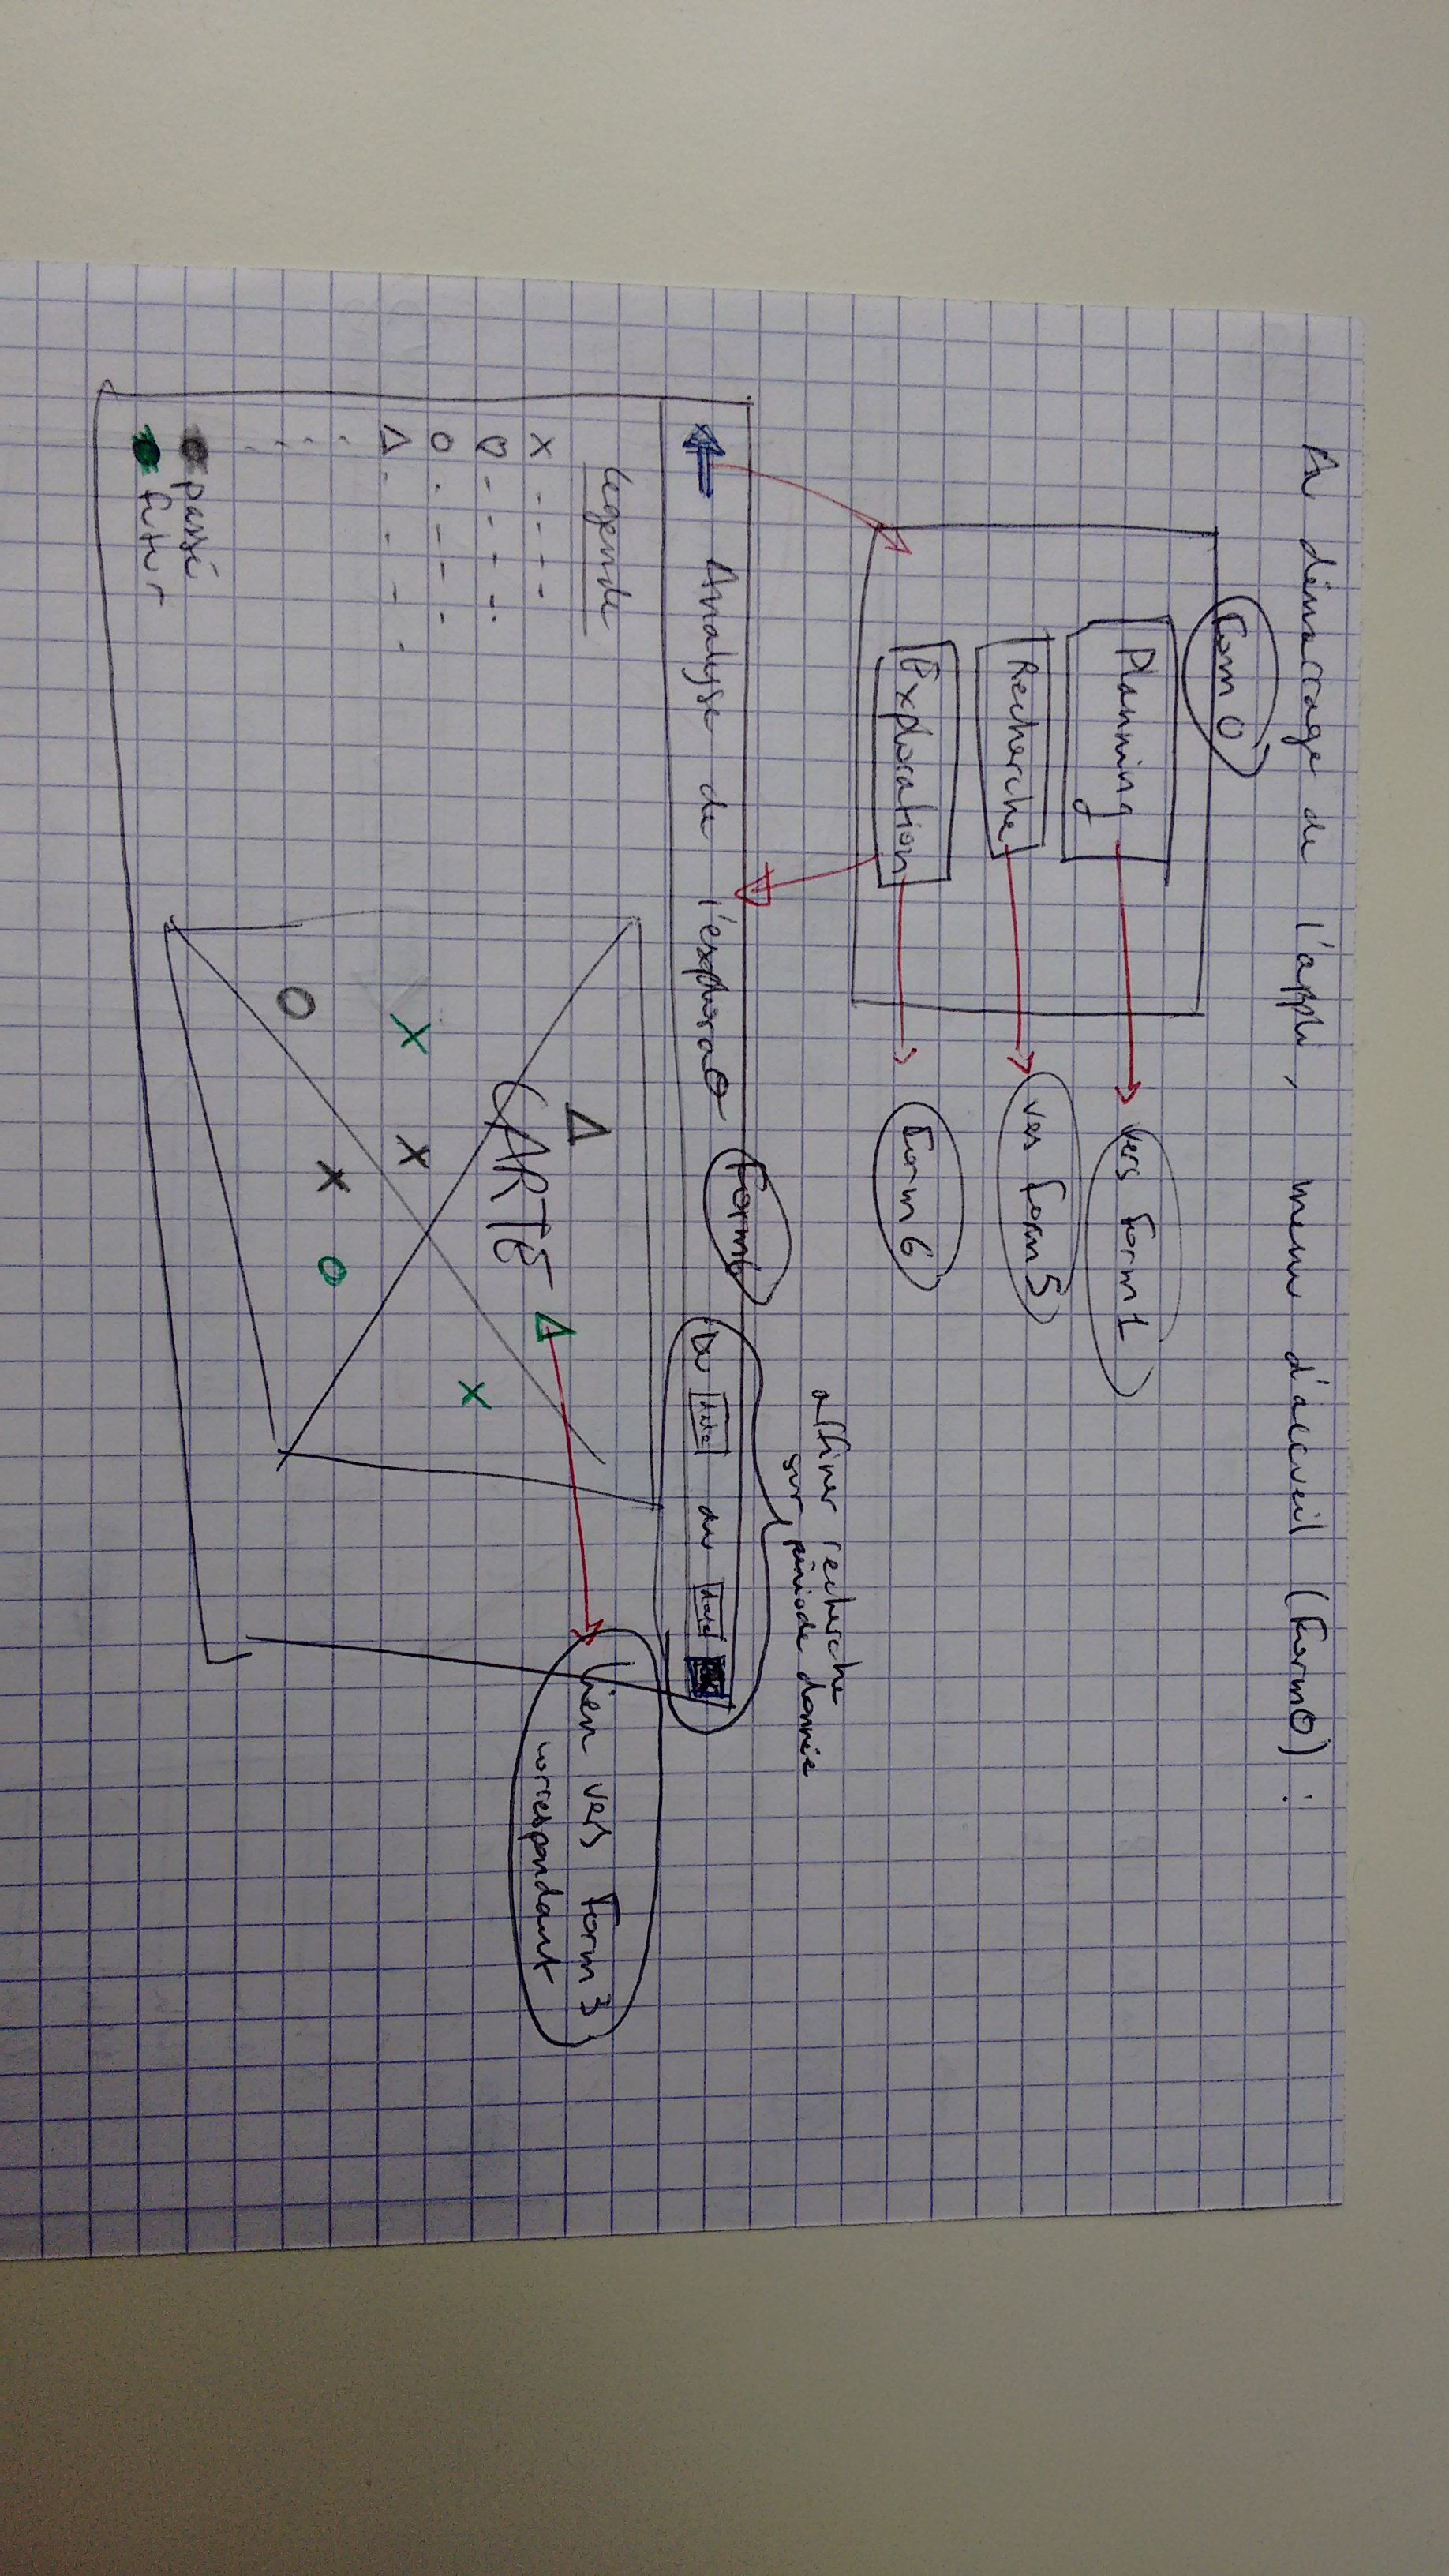 Au démarrage de l'appli, menu d'accueil (Form0) :
Form 0
Planning
vers Form 1
Recherche
vers Form 5
Exploration
Form 6
affiner recherche
sur période donnée
Analyse de l'explora
Form6
Du date au date OK
Légende
CARTE
Lien vers Form 3
correspondant
passé
futur